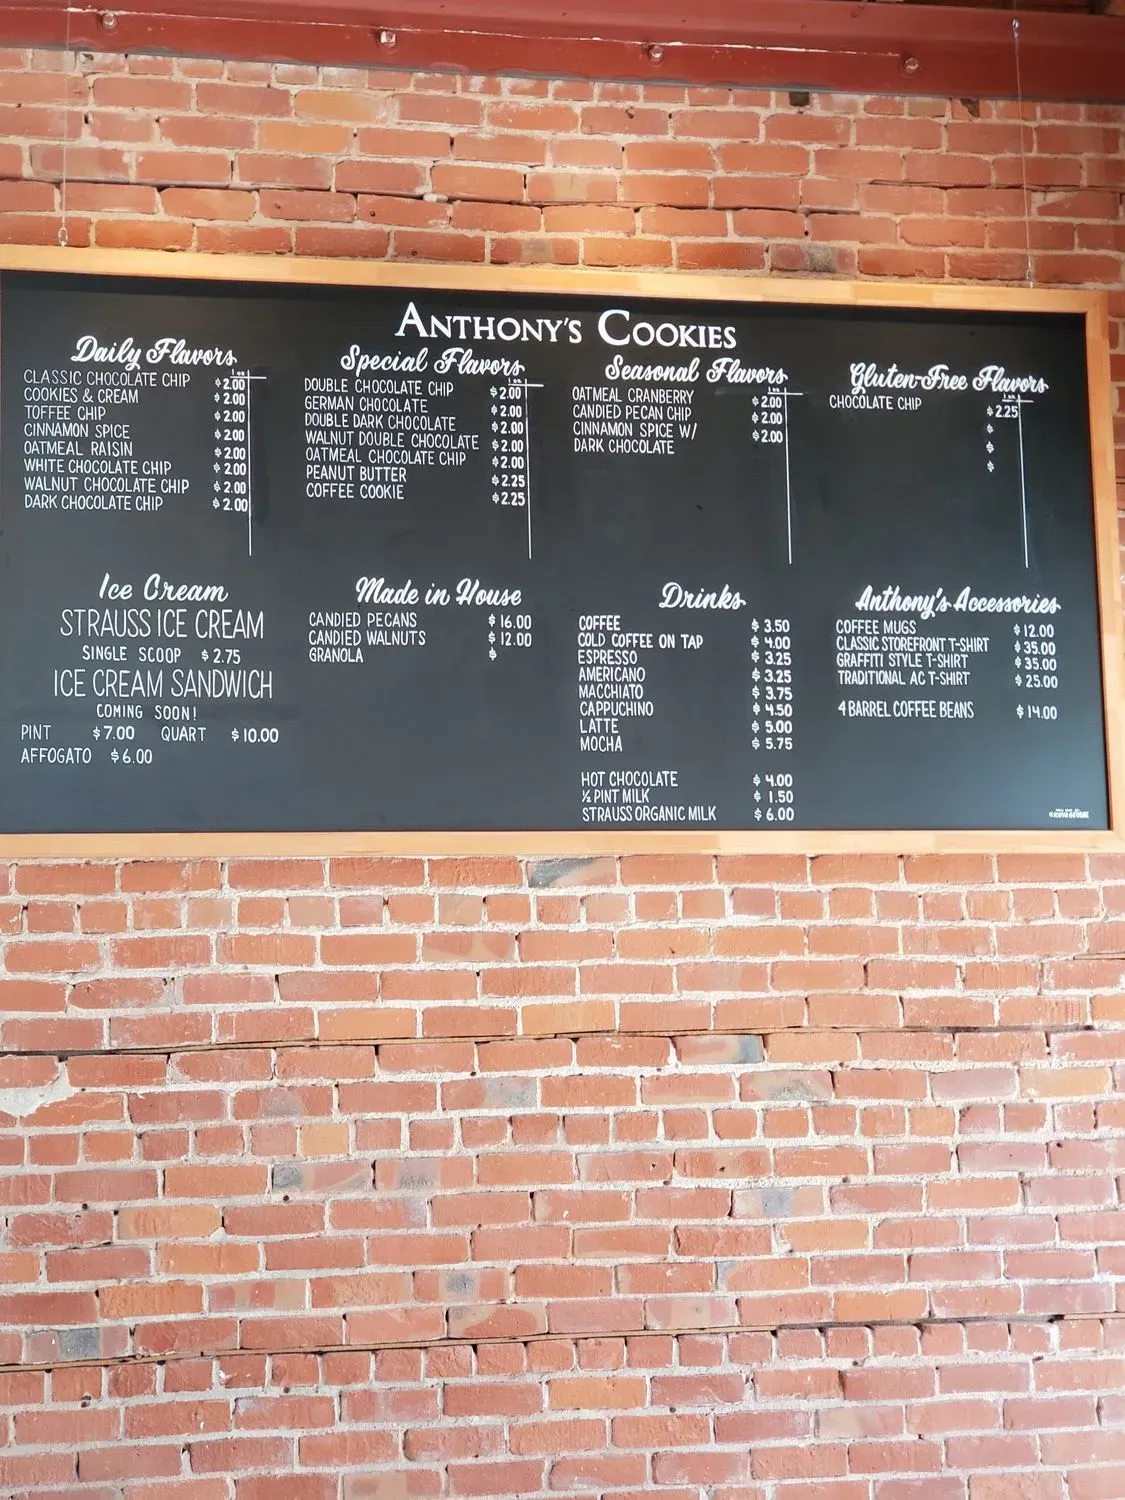 ANTHONY'S COOKIES
Daily Flavors
CLASSIC CHOCOLATE CHIP $2.00
COOKIES & CREAM $2.00
TOFFEE CHIP $2.00
CINNAMON SPICE $2.00
OATMEAL RAISIN $2.00
WHITE CHOCOLATE CHIP $2.00
WALNUT CHOCOLATE CHIP $2.00
DARK CHOCOLATE CHIP $2.00
Special Flavors
DOUBLE CHOCOLATE CHIP $2.00
GERMAN CHOCOLATE $2.00
DOUBLE DARK CHOCOLATE $2.00
WALNUT DOUBLE CHOCOLATE $2.00
OATMEAL CHOCOLATE CHIP $2.00
PEANUT BUTTER $2.25
COFFEE COOKIE $2.25
Seasonal Flavors
OATMEAL CRANBERRY $2.00
CANDIED PECAN CHIP $2.00
CINNAMON SPICE W/ $2.00
DARK CHOCOLATE
Gluten-Free Flavors
CHOCOLATE CHIP $2.25
$
$
$
Ice Cream
STRAUSS ICE CREAM
SINGLE SCOOP $2.75
ICE CREAM SANDWICH
COMING SOON!
PINT $7.00 QUART $10.00
AFFOGATO $6.00
Made in House
CANDIED PECANS $16.00
CANDIED WALNUTS $12.00
GRANOLA $
Drinks
COFFEE $3.50
COLD COFFEE ON TAP $4.00
ESPRESSO $3.25
AMERICANO $3.25
MACCHIATO $3.75
CAPPUCHINO $4.50
LATTE $5.00
MOCHA $5.75
HOT CHOCOLATE $4.00
½ PINT MILK $1.50
STRAUSS ORGANIC MILK $6.00
Anthony's Accessories
COFFEE MUGS $12.00
CLASSIC STOREFRONT T-SHIRT $35.00
GRAFFITI STYLE T-SHIRT $35.00
TRADITIONAL AC T-SHIRT $25.00
4 BARREL COFFEE BEANS $14.00